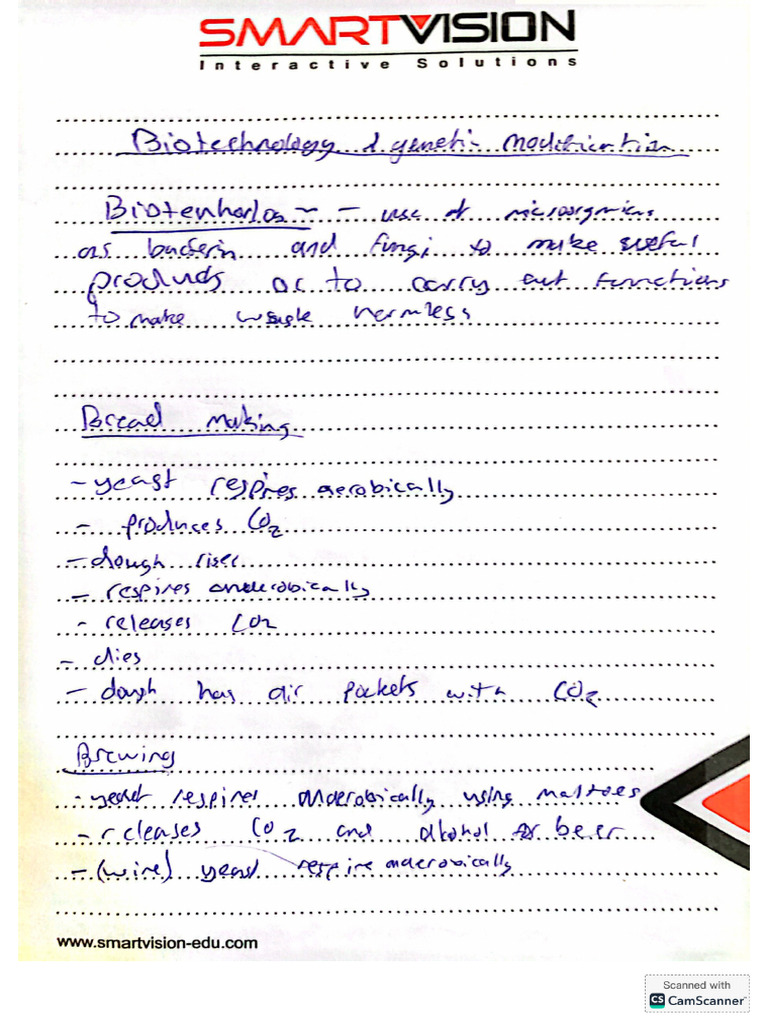 SMARTVISION
Interactive Solutions
Biotechnology & genetic modification
- use of microorganics
as bacteria and fungi to make useful
products or to carry out functions
to make waste harmless
Bread making
- yeast respires aerobically
- produces CO2
- dough rises
- respires anaerobically
- releases CO2
- dies
- dough has air pockets with CO2
Brewing
- yeast respires anaerobically using maltose
- releases CO2 and alkohol for beer
- (wine) yeast respire anaerobically
www.smartvision-edu.com
Scanned with
CS CamScanner